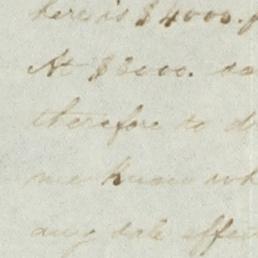 here is $4000.
At $3000.
therefore to d
me know wh
any sale effec